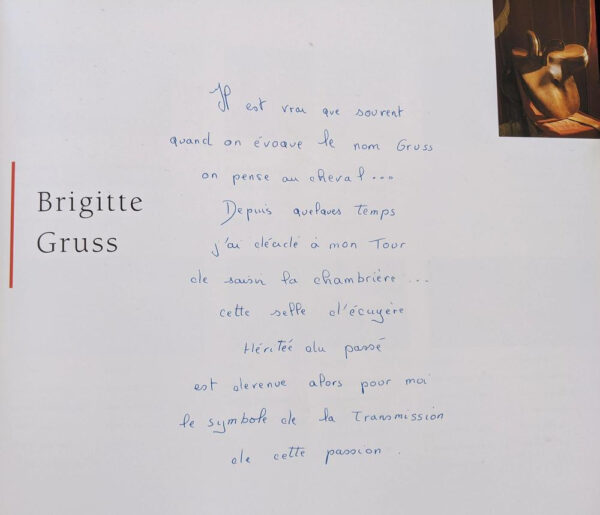 Il est vrai que souvent
quand on évoque le nom Gruss
on pense au cheval...
Depuis quelques temps
j'ai décidé à mon Tour
de saisir la chambrière...
cette selle d'écuyère
Héritée du passé
est devenue alors pour moi
le symbole de la Transmission
de cette passion.
Brigitte
Gruss